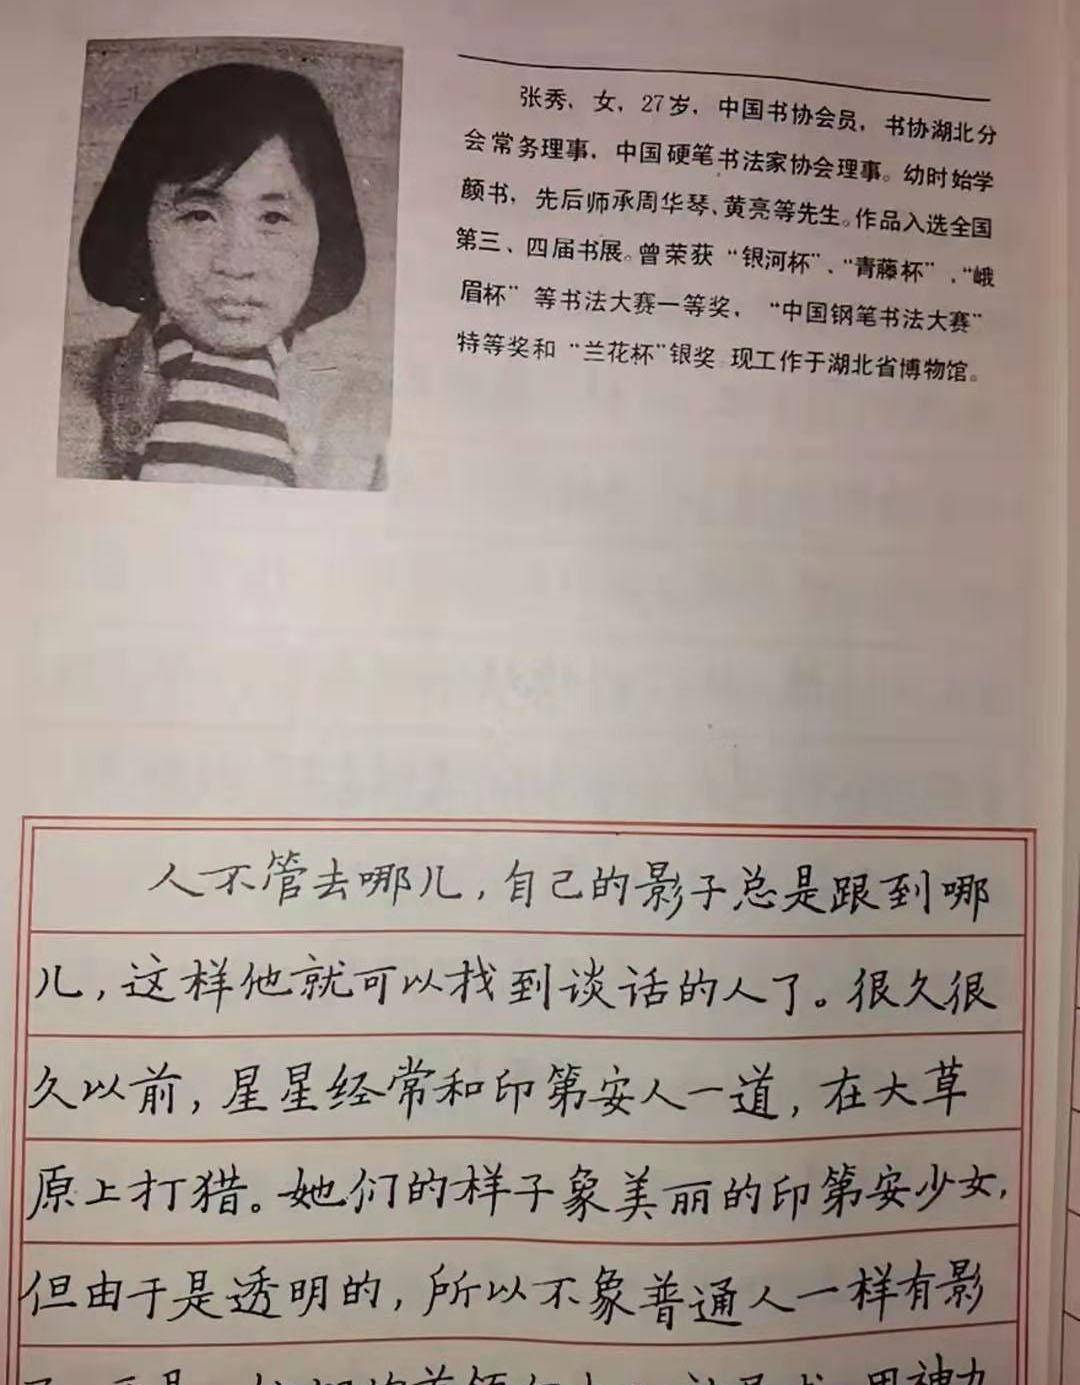 张秀，女，27岁，中国书协会员，书协湖北分
会常务理事，中国硬笔书法家协会理事。幼时始学
颜书，先后师承周华琴、黄亮等先生。作品入选全国
第三、四届书展。曾荣获“银河杯”、“青藤杯”、“峨
眉杯”等书法大赛一等奖，“中国钢笔书法大赛”
特等奖和“兰花杯”银奖 现工作于湖北省博物馆。
人不管去哪儿，自己的影子总是跟到哪
儿，这样他就可以找到谈话的人了。很久很
久以前，星星经常和印第安人一道，在大草
原上打猎。她们的样子象美丽的印第安少女，
但由于是透明的，所以不象普通人一样有影